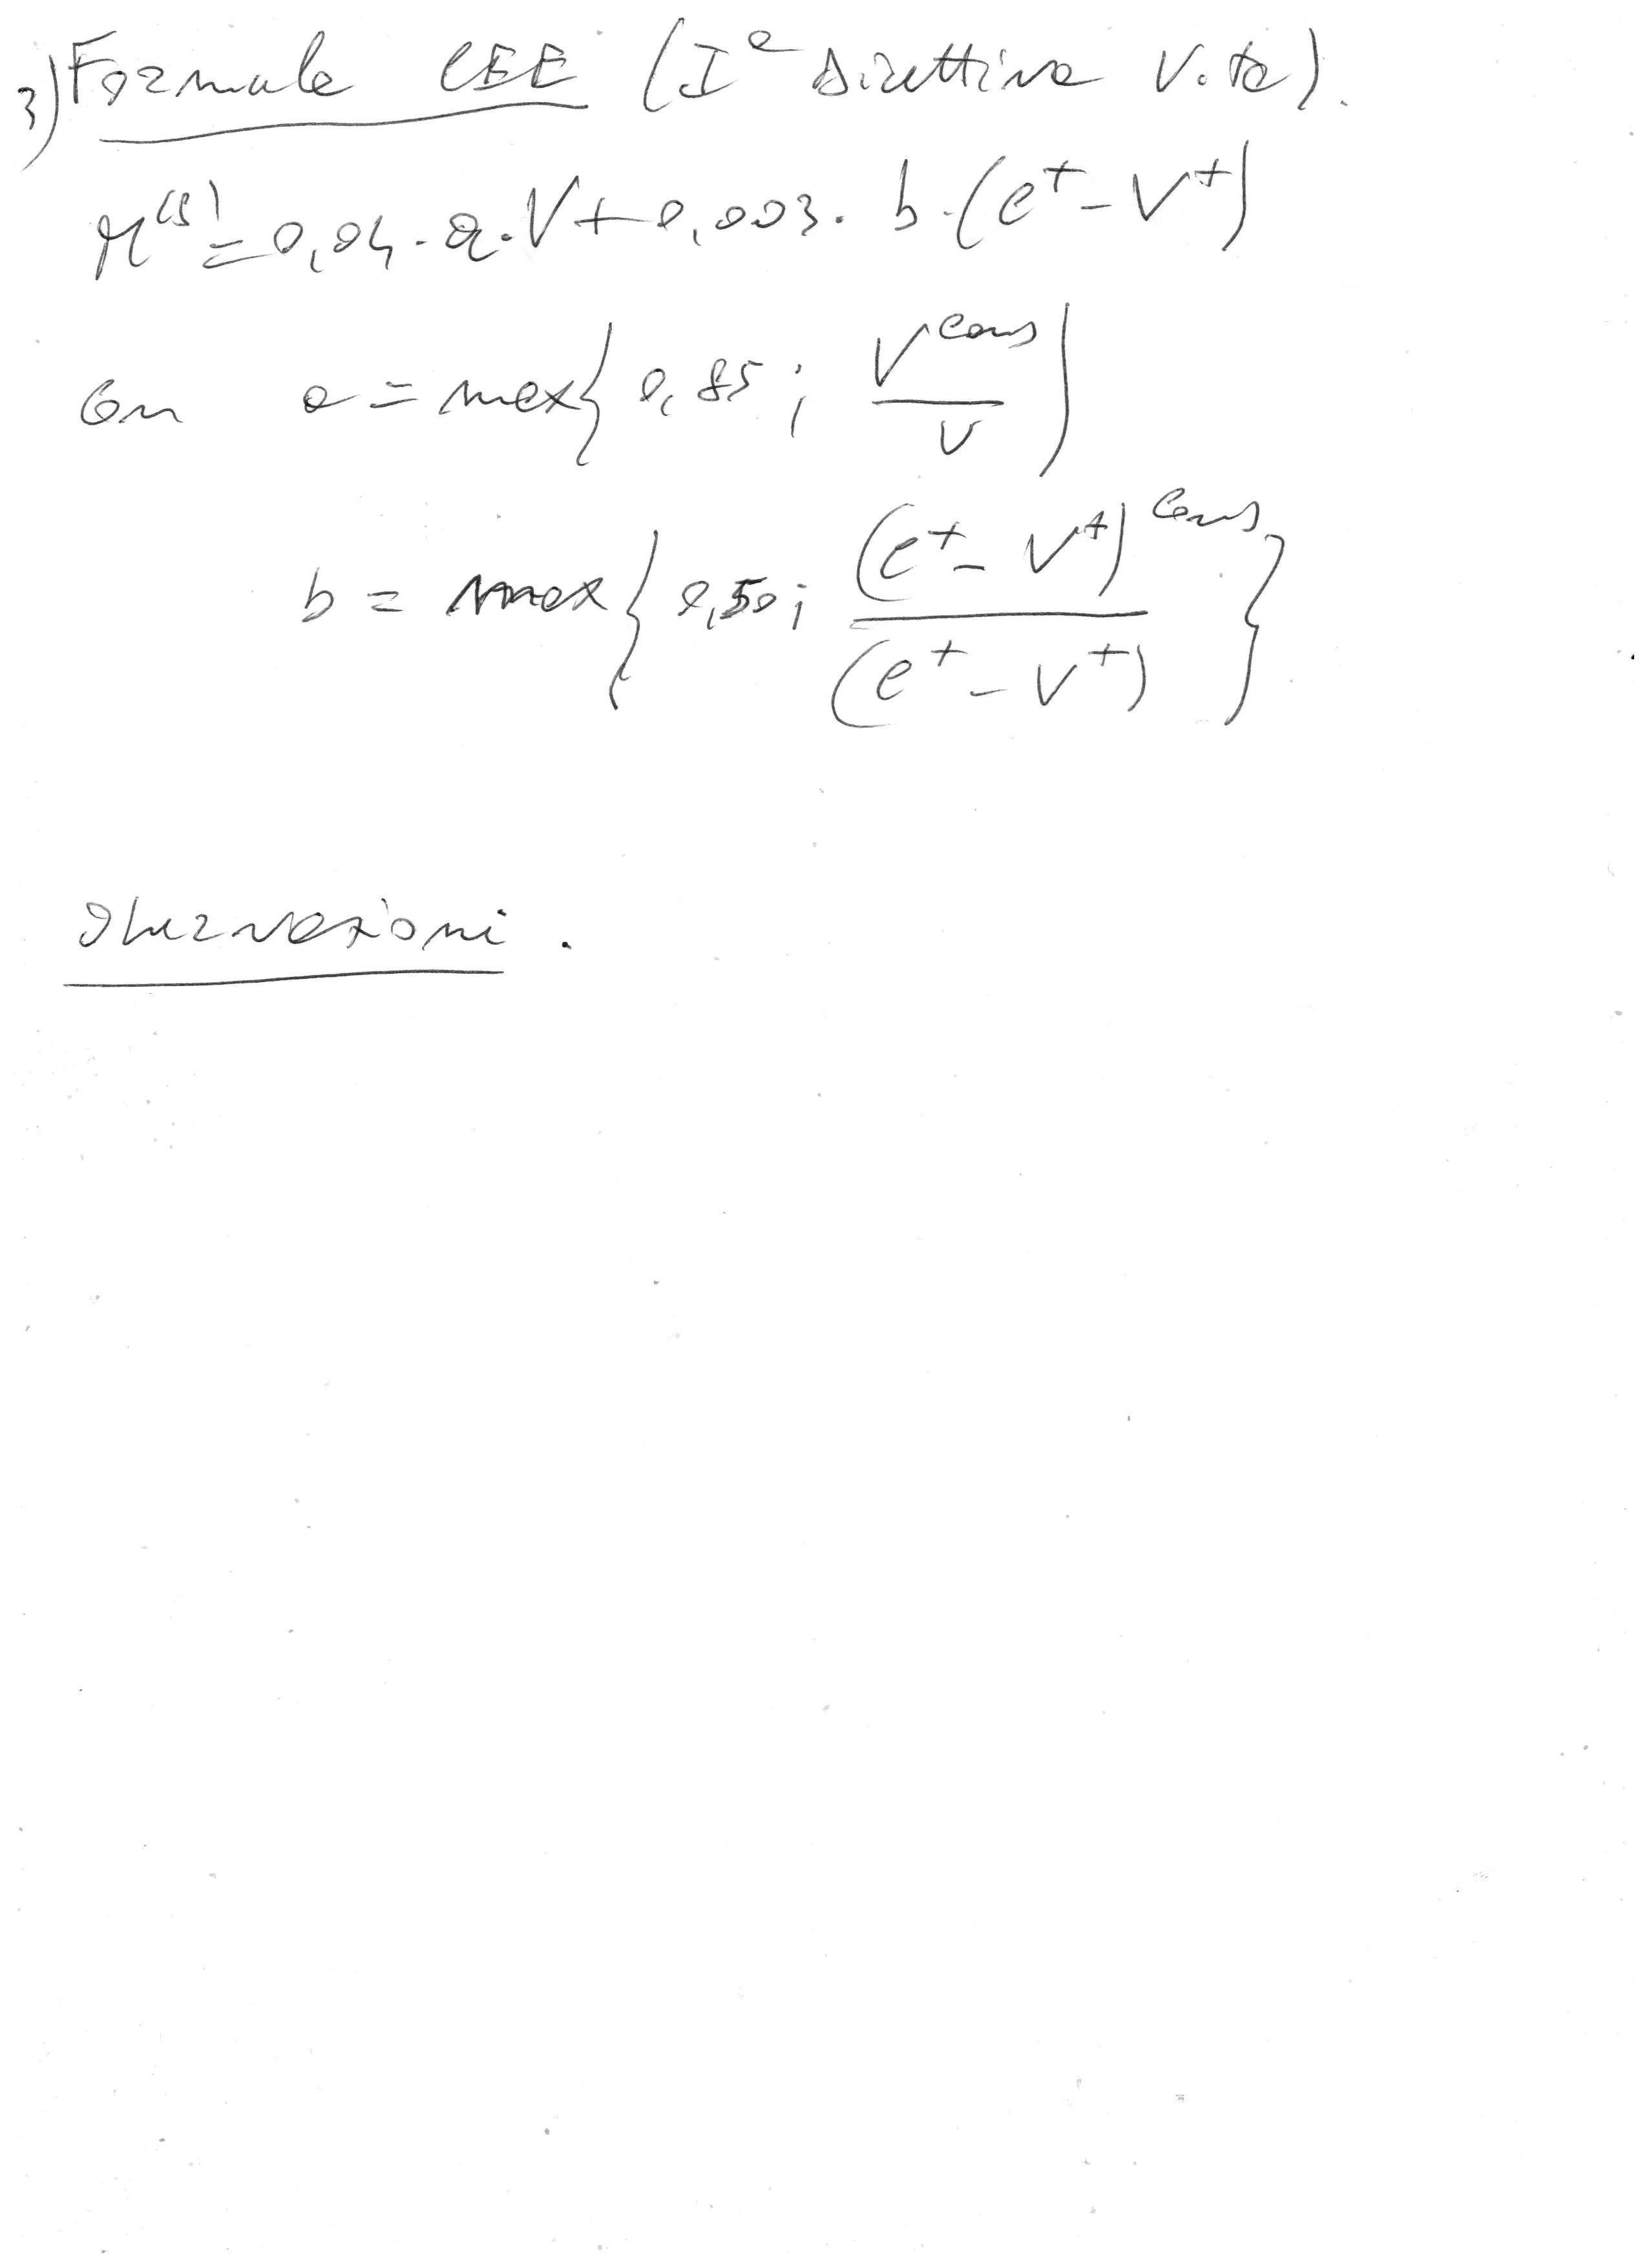 3) Formula CEE (Iª Direttiva Vita).
M^(s) = 0,04 · a · V + 0,003 · b · (C⁺ - V⁺)
Con a = max{ 0,85 ; V^cons / V }
b = max{ 0,50 ; (C⁺ - V⁺)^cons / (C⁺ - V⁺) }
Osservazioni.